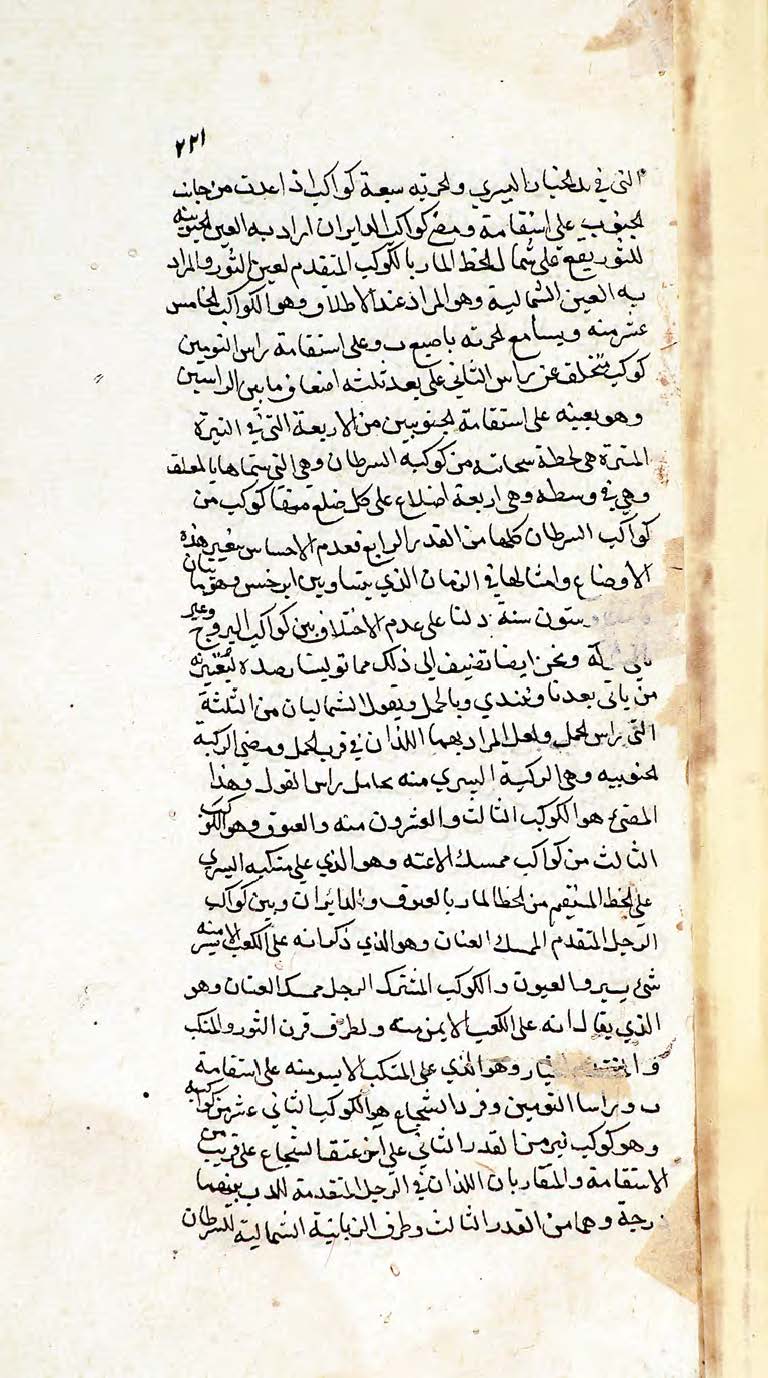 ٢٢١
التي في يد الجنبا اليسري ولحربه سبعة كواكب اذا عدت من جانب
الجنوب علي استقامة ومع كواكب الدايران اراد به العين الجنوبية
للثور يقع علي شمال الخط المار بالكوكب المتقدم لعين الثور والمراد
به العين الشمالية وهو المراد عند الاطلاق وهو الكواكب الخامس
عشر منه ويسامع لحربه باصبع ب وعلي استقامة راس التومين
كوكب متخلف عن راس الثاني علي بعد ثلثه اضعاف ما بين الراسين
وهو بعينه علي استقامة الجنوبيين من الاربعة التي في النيرة
المنزة هي لحطة سحابية من كوكبه السرطان وهي التي سماها بالمعلف
وهي في وسطه وهي اربعة اضلاع علي كل ضلع منها كوكب من
كواكب السرطان كلها من القدر الرابع فعدم الاحساس بتغير هذه
الاوضاع وامثالها في الزمان الذي بيننا وبين ابرخس وهو مايتان
وستون سنة دلنا علي عدم الاختلاف بين كواكب البروج وغير
ونحن ايضا نضيف الي ذلك مما تولينا رصده ليعتبر به
من ياتي بعدنا ونبتدي وبالحمل ونقول الشماليان من الثلثة
التي راس الحمل ولعل المراد بهما اللذان في قرب الحمل ومضي الركبة
الجنوبيه وهي الركبة اليسري منه حامل راس الغول وهذا
المضئ هو الكوكب الثالث والعشرون منه والعيوق وهو الكوكب
الثالث من كواكب ممسك الاعنه وهو الذي علي منكبه اليسري
علي الخط المستقيم من الخط المار بالعيوق والدايران وبين كواكب
الرجل المتقدم الممسك العنان وهو الذي ذكر انه علي الكعب الايسر منه
شئ يسير والعيون والكوكب المشترك الرجل ممسك العنان وهو
الذي يقال انه علي الكعب الايمن منه ولطرف قرن الثور والمنكب
وهو الذي علي المنكب الايسر منه علي استقامة
ب وبراسا التومين وفرد الشجاع هو الكوكب الثاني عشر من كوكبه
وهو كوكب نير من القدر الثاني علي اخر عنق الشجاع علي قريب من
الاستقامة والمتقاربان اللذان في الرجل المتقدمة للدب بينهما
درجة وهما من القدر الثالث وطرف الزبانية الشمالية للسرطان